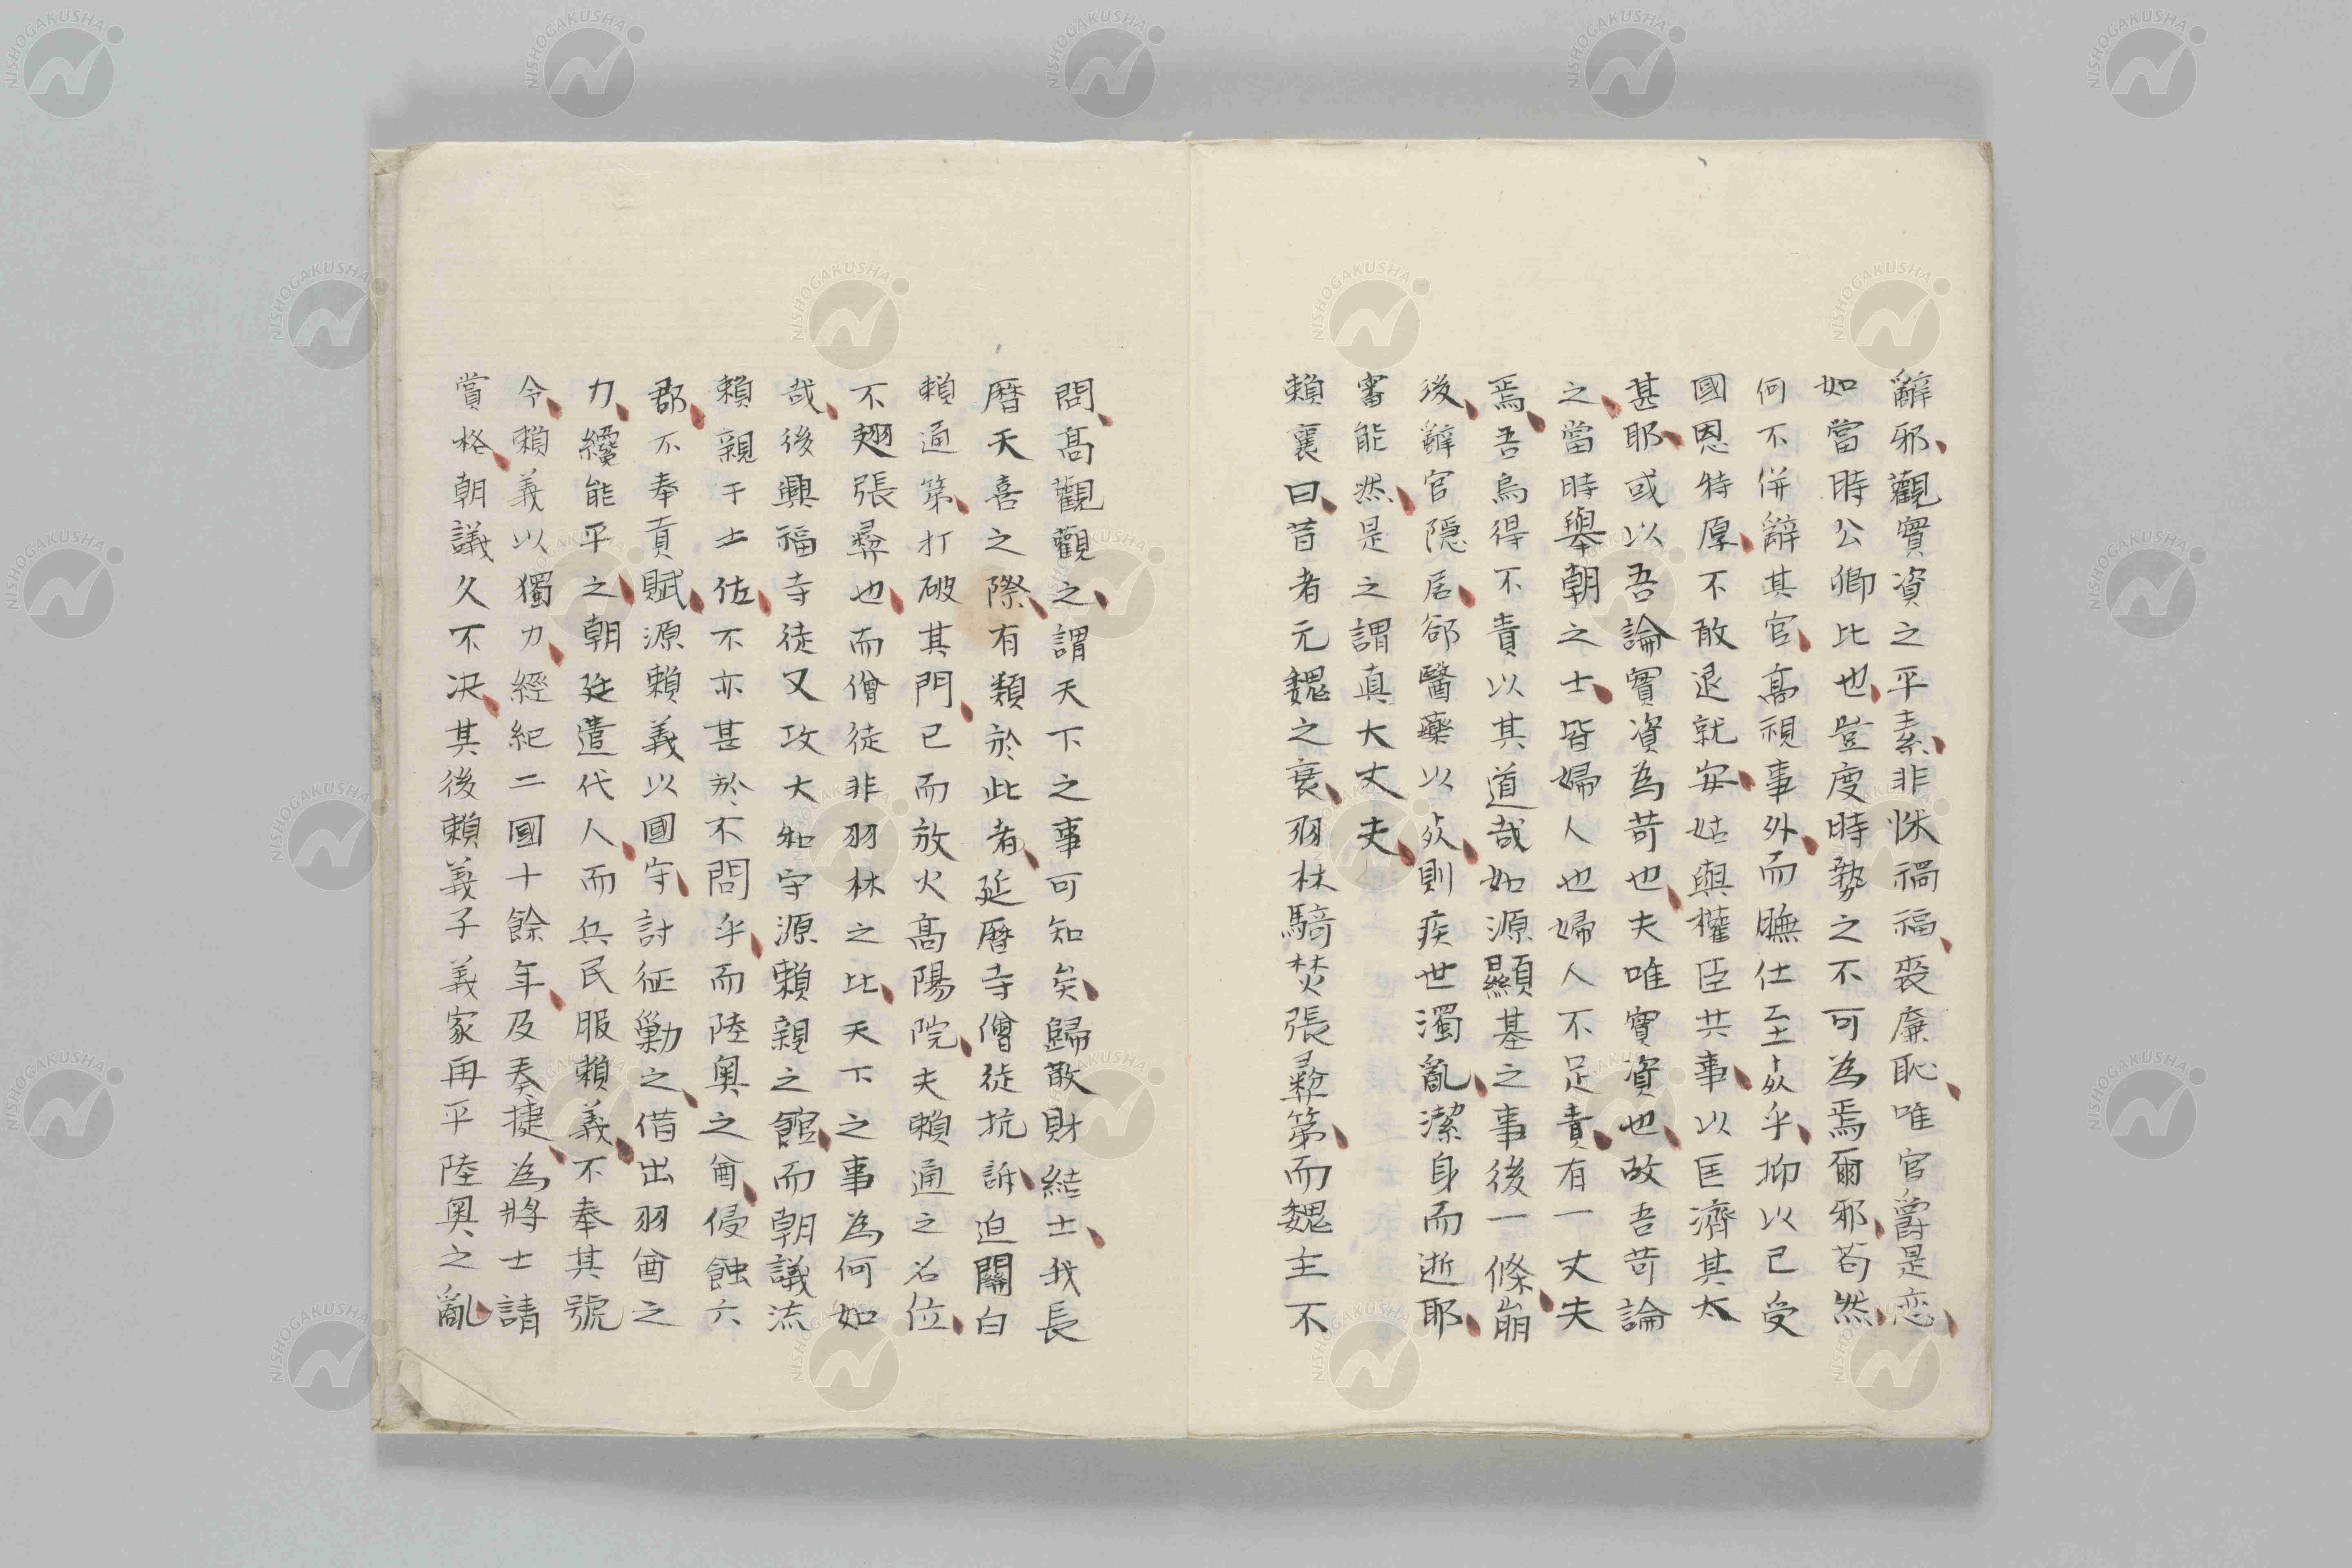 辭邪觀實資之平素非怵禍福喪廉恥唯官爵是恋
如當時公卿比也豈度時勢之不可為焉爾邪苟然
何不併辭其官高視事外而膴仕至死乎抑以已受
國恩特厚不敢退就安姑與權臣共事以匡濟其太
甚耶或以吾論實資為苛也夫唯實資也故吾苛論
之當時舉朝之士皆婦人也婦人不足責有一丈夫
焉吾烏得不責以其道哉如源顯基之事後一條崩
後辭官隱居郤醫藥以死則疾世濁亂潔身而逝耶
審能然是之謂真大丈夫
賴襄曰昔者元魏之衰羽林騎焚張彜第而魏主不
問高觀觀之謂天下之事可知矣歸散財結士我長
曆天喜之際有類於此者延曆寺僧徒抗訴迫關白
賴通第打破其門已而放火高陽院夫賴通之名位
不翅張彜也而僧徒非羽林之比天下之事為何如
哉後興福寺徒又攻大和守源賴親之館而朝議流
賴親于土佐不亦甚於不問乎而陸奧之酋侵蝕六
郡不奉貢賦源賴義以國守討征勦之借出羽酋之
力纔能平之朝廷遣代人而兵民服賴義不奉其號
令賴義以獨力經紀二國十餘年及奏捷為將士請
賞格朝議久不決其後賴義子義家再平陸奧之亂